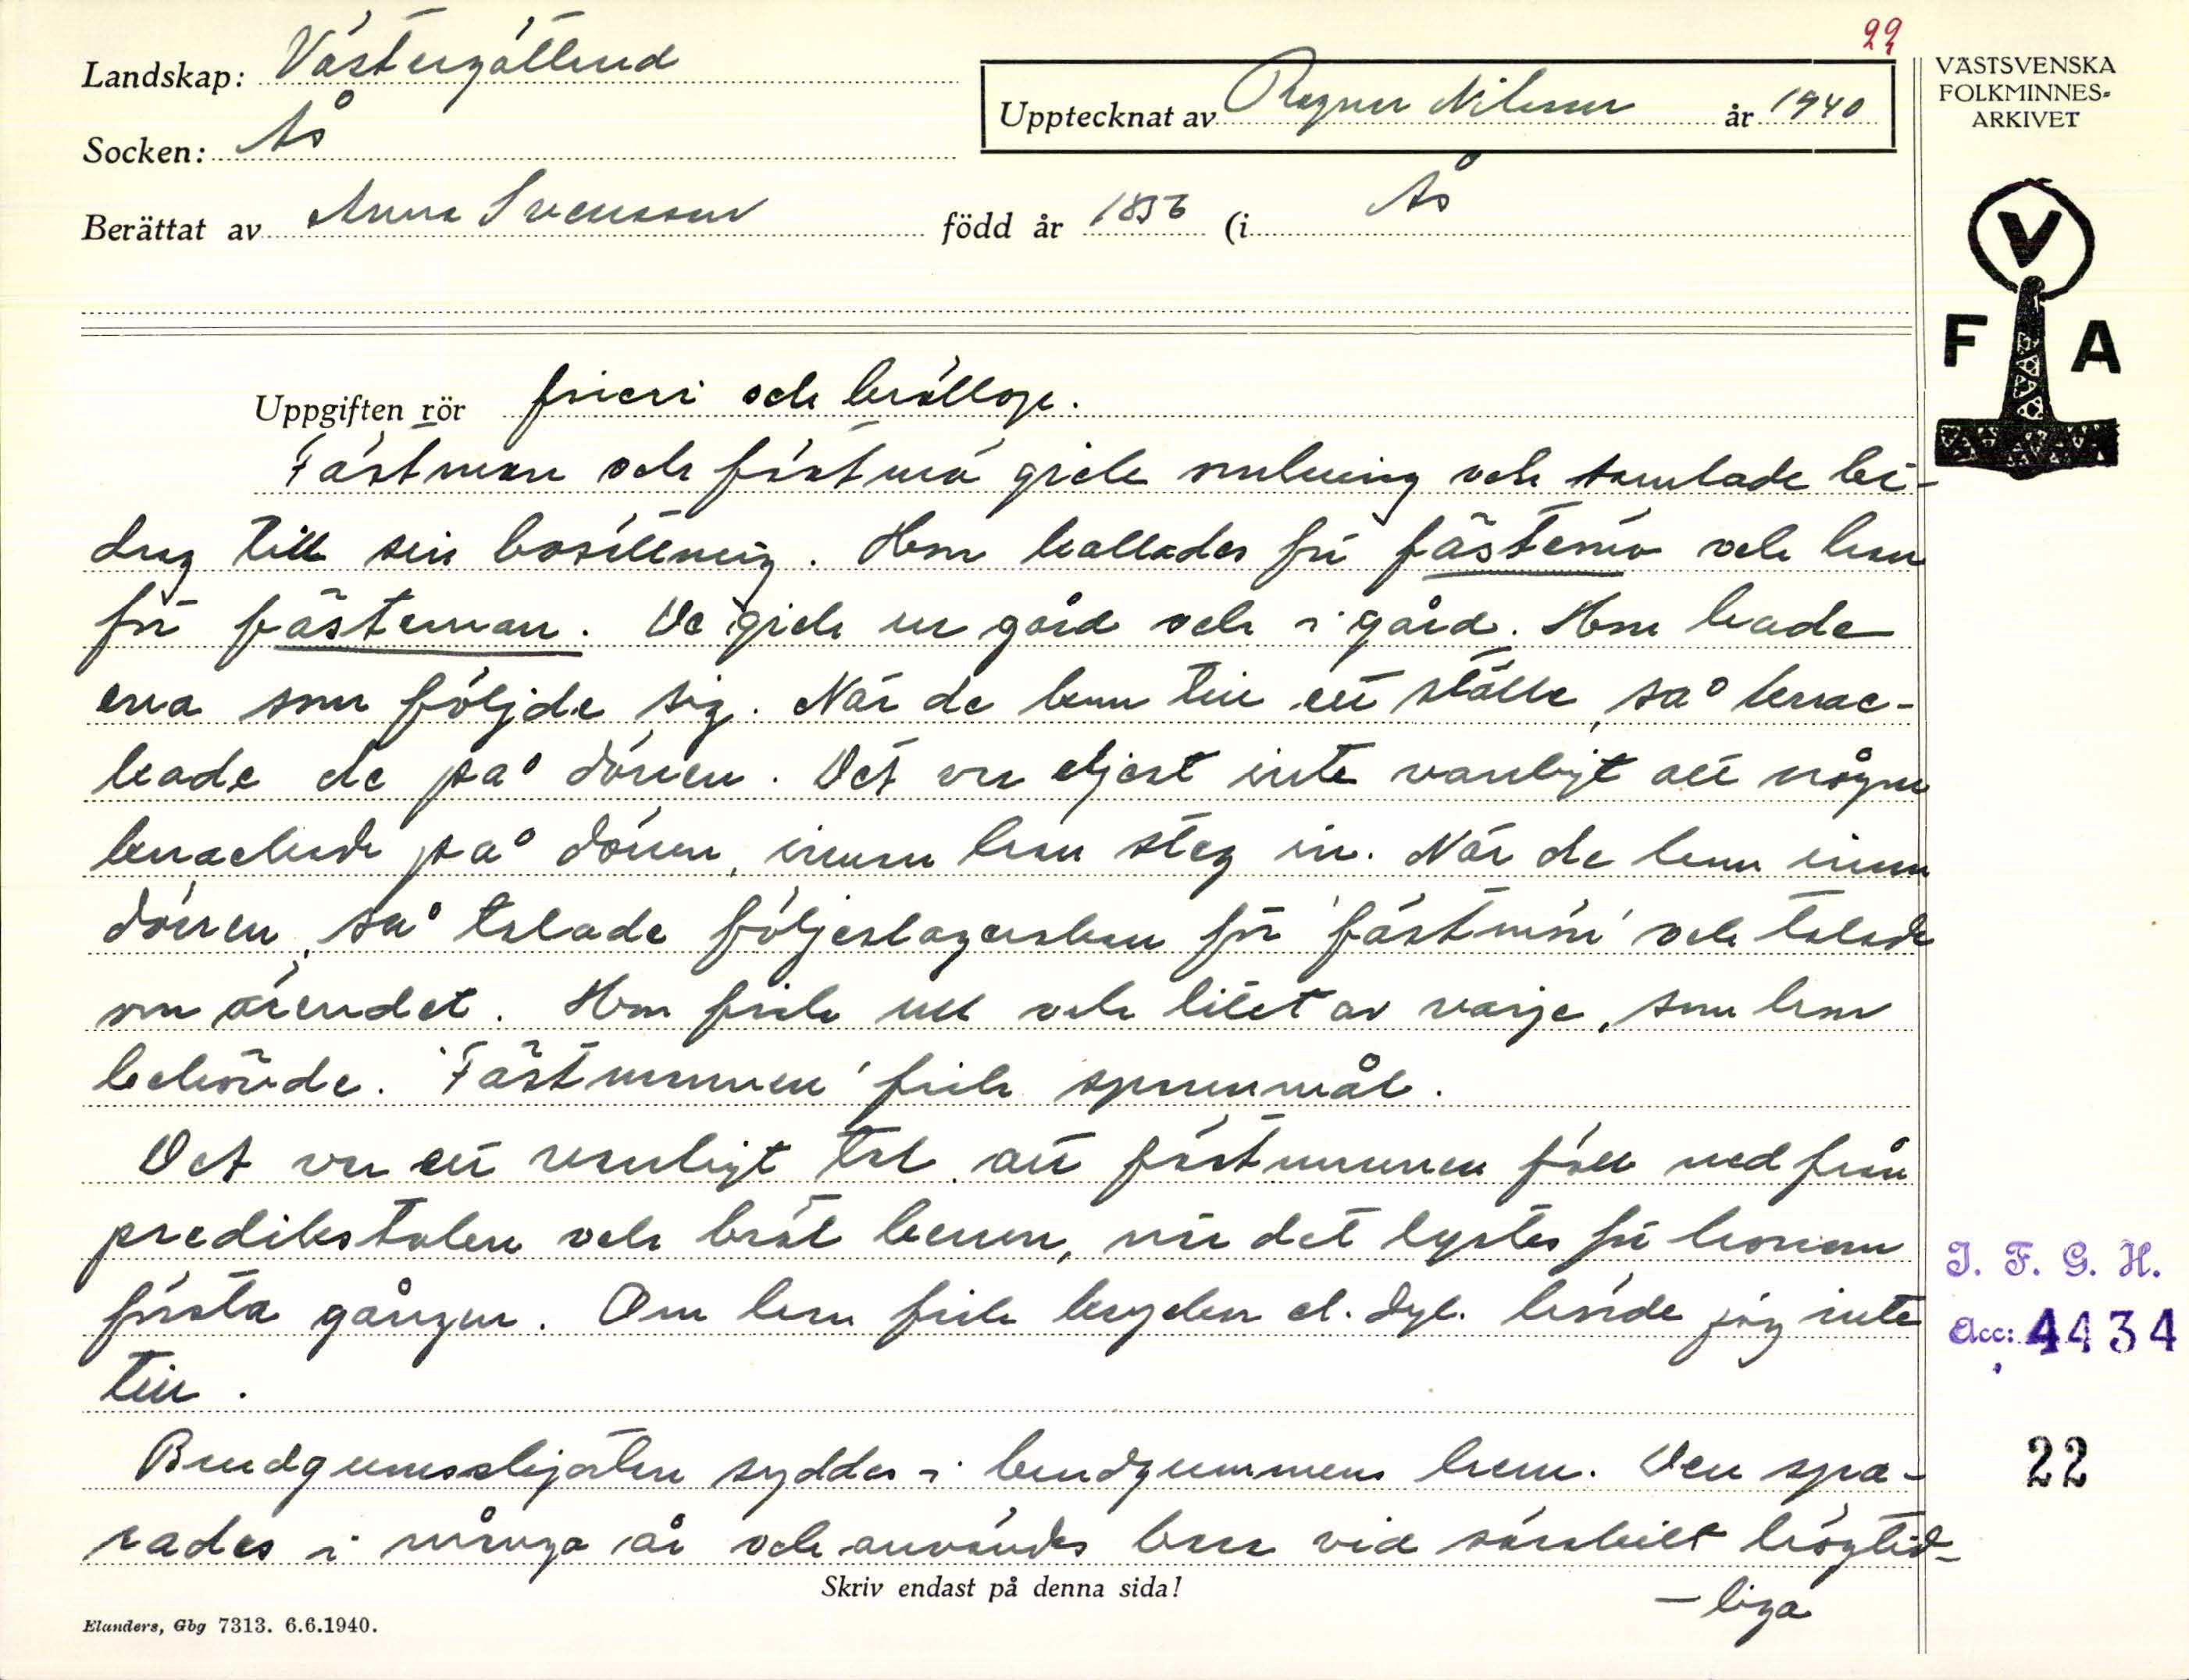 22
Landskap: Västergötland
Upptecknat av Ragnar Nilsson år 1940
Socken: Ås
Berättat av Anna Svensson född år 1856 (i Ås
VÄSTSVENSKA
FOLKMINNES-
ARKIVET
V
F A
Uppgiften rör frieri och bröllop.
Fästman och fästmö gick omkring och samlade bi-
drag till sin bosättning. Hon kallades för fästemö och han
för fästeman. De gick ur gård och i gård. Hon hade
ena som följde sig. När de kom till ett ställe, så knac-
kade de på dörren. Det var eljest inte vanligt att någon
knackade på dörren, innan han steg in. När de kom innan
dörren, så talade följeslagerskan för 'fästmöi' och talade
om ärendet. Hon fick ull och litet av varje, som hon
behövde. 'Fästmannen' fick spannmål.
Det var ett vanligt tal, att fästmannen föll ned från
predikstolen och bröt benen, när det lystes för honom
första gången. Om han fick kryckor el. dyl. hörde jag inte
till.
Brudgumsskjortan syddes i brudgummens hem. Den spa-
rades i många år och användes bara vid särskilt högtid-
-liga
Skriv endast på denna sida!
Elanders, Gbg 7313. 6.6.1940.
I. F. G. H.
Acc: 4434
22